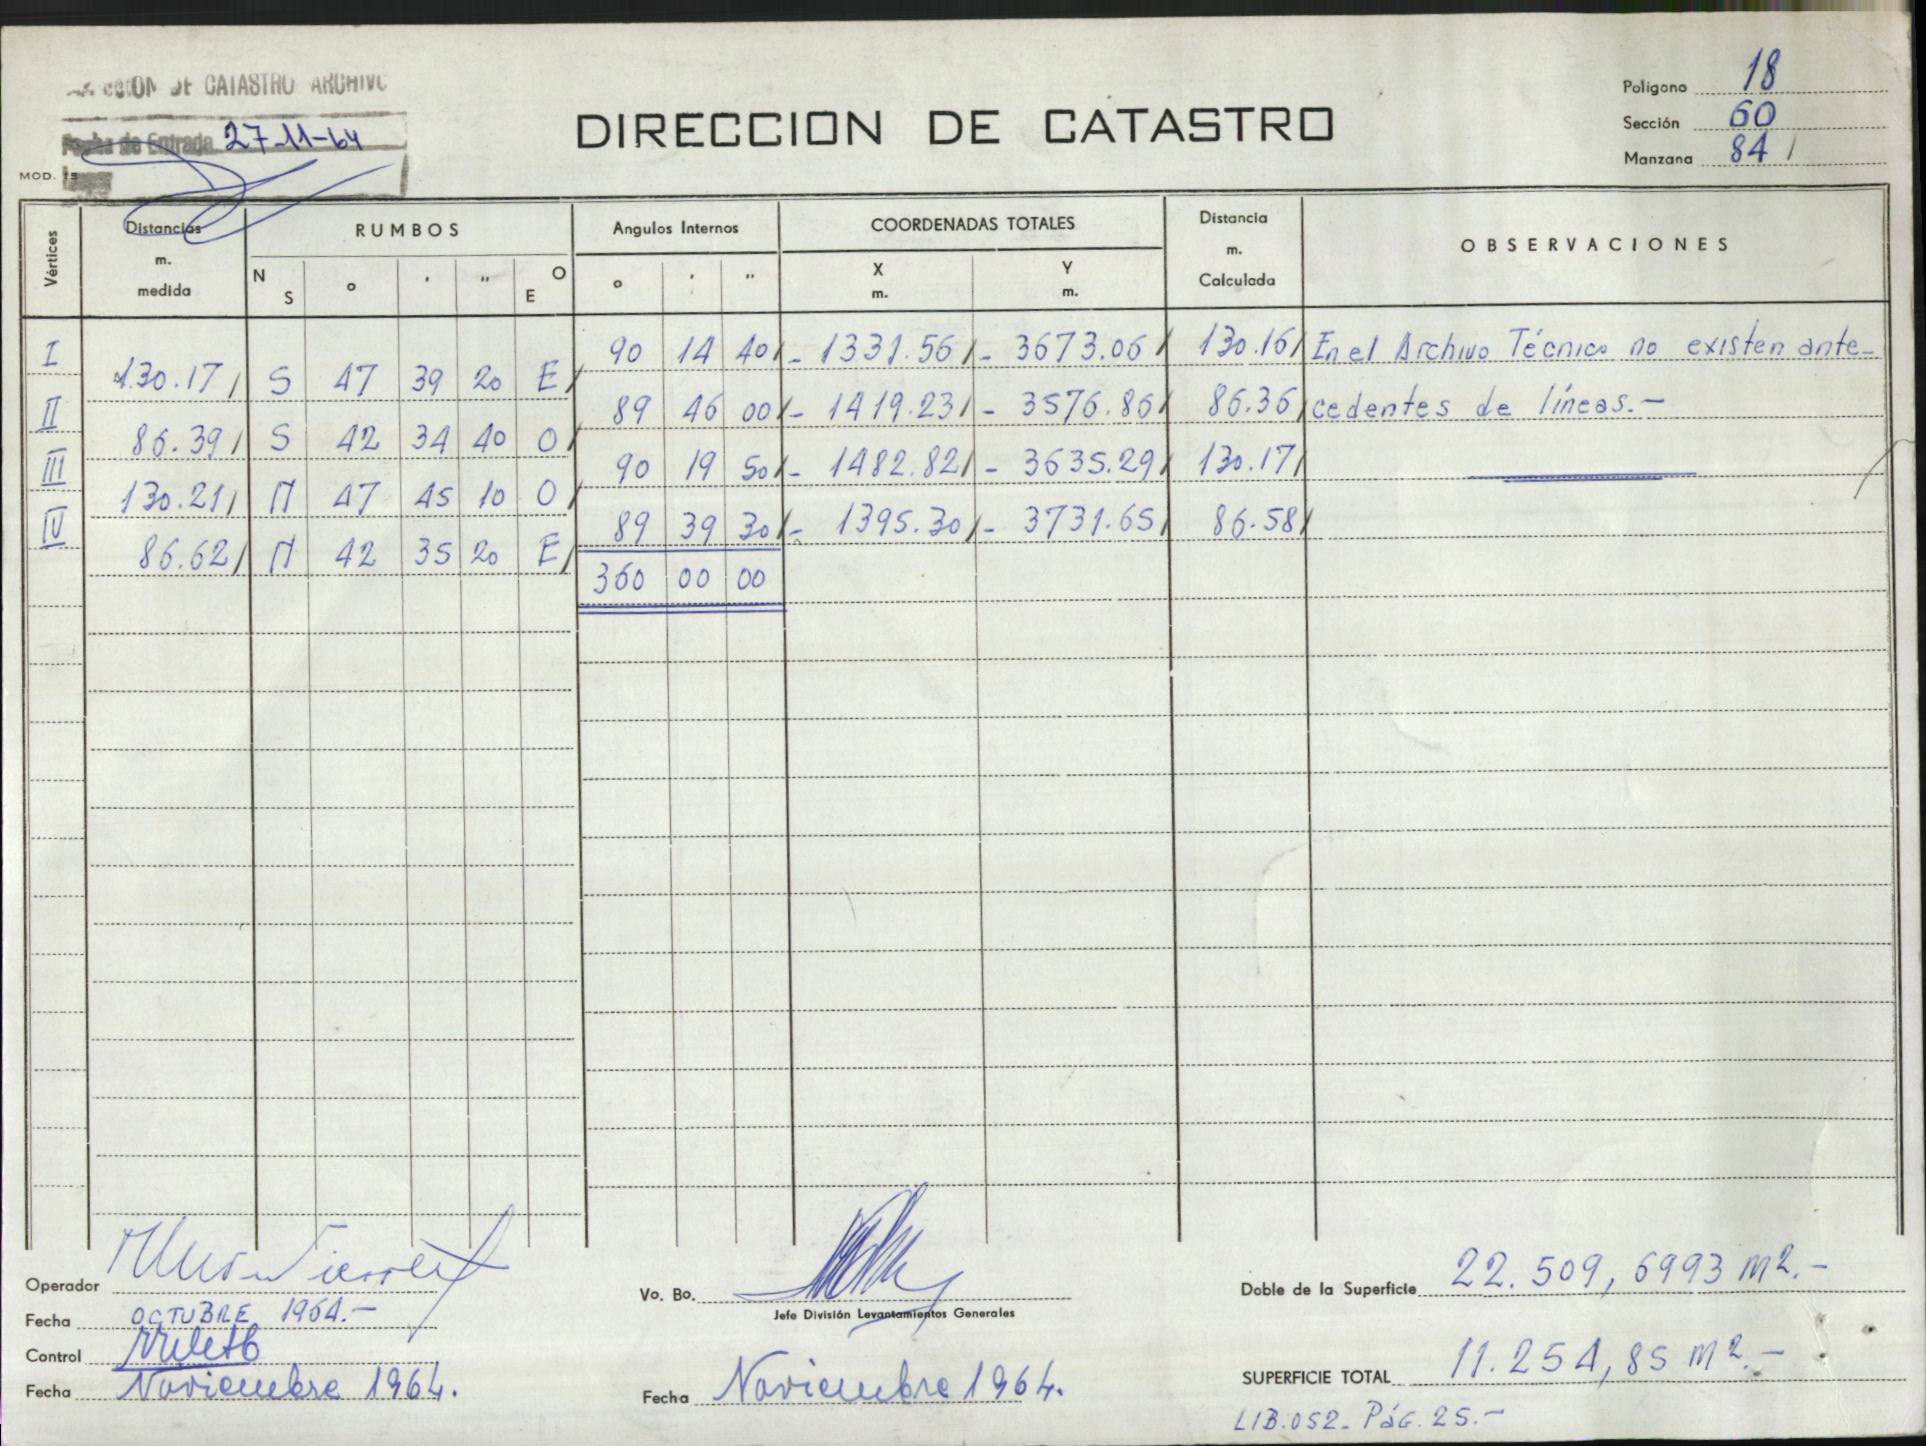 DE CATASTRO ARCHIVO
Fecha de Entrada 27-11-64
MOD. 15
DIRECCION DE CATASTRO
Polígono 18
Sección 60
Manzana 84
Vértices
Distancias m. medida
RUMBOS
N S ° ' " O E
Angulos Internos
° ' "
COORDENADAS TOTALES
X m. Y m.
Distancia m. Calculada
OBSERVACIONES
I 90 14 40 - 1331.56 - 3673.06 130.16 En el Archivo Técnico no existen ante-
130.17 S 47 39 20 E
II 89 46 00 - 1419.23 - 3576.86 86.36 cedentes de líneas.-
86.39 S 42 34 40 O
III 90 19 50 - 1482.82 - 3635.29 130.17
130.21 N 47 45 10 O
IV 89 39 30 - 1395.30 - 3731.65 86.58
86.62 N 42 35 20 E
360 00 00
Operador
Fecha OCTUBRE 1964.-
Control
Fecha Noviembre 1964.
Vo. Bo.
Jefe División Levantamientos Generales
Fecha Noviembre 1964.
Doble de la Superficie 22.509,6993 m2.-
SUPERFICIE TOTAL 11.254,85 m2.-
LIB.052- PáG.25.-